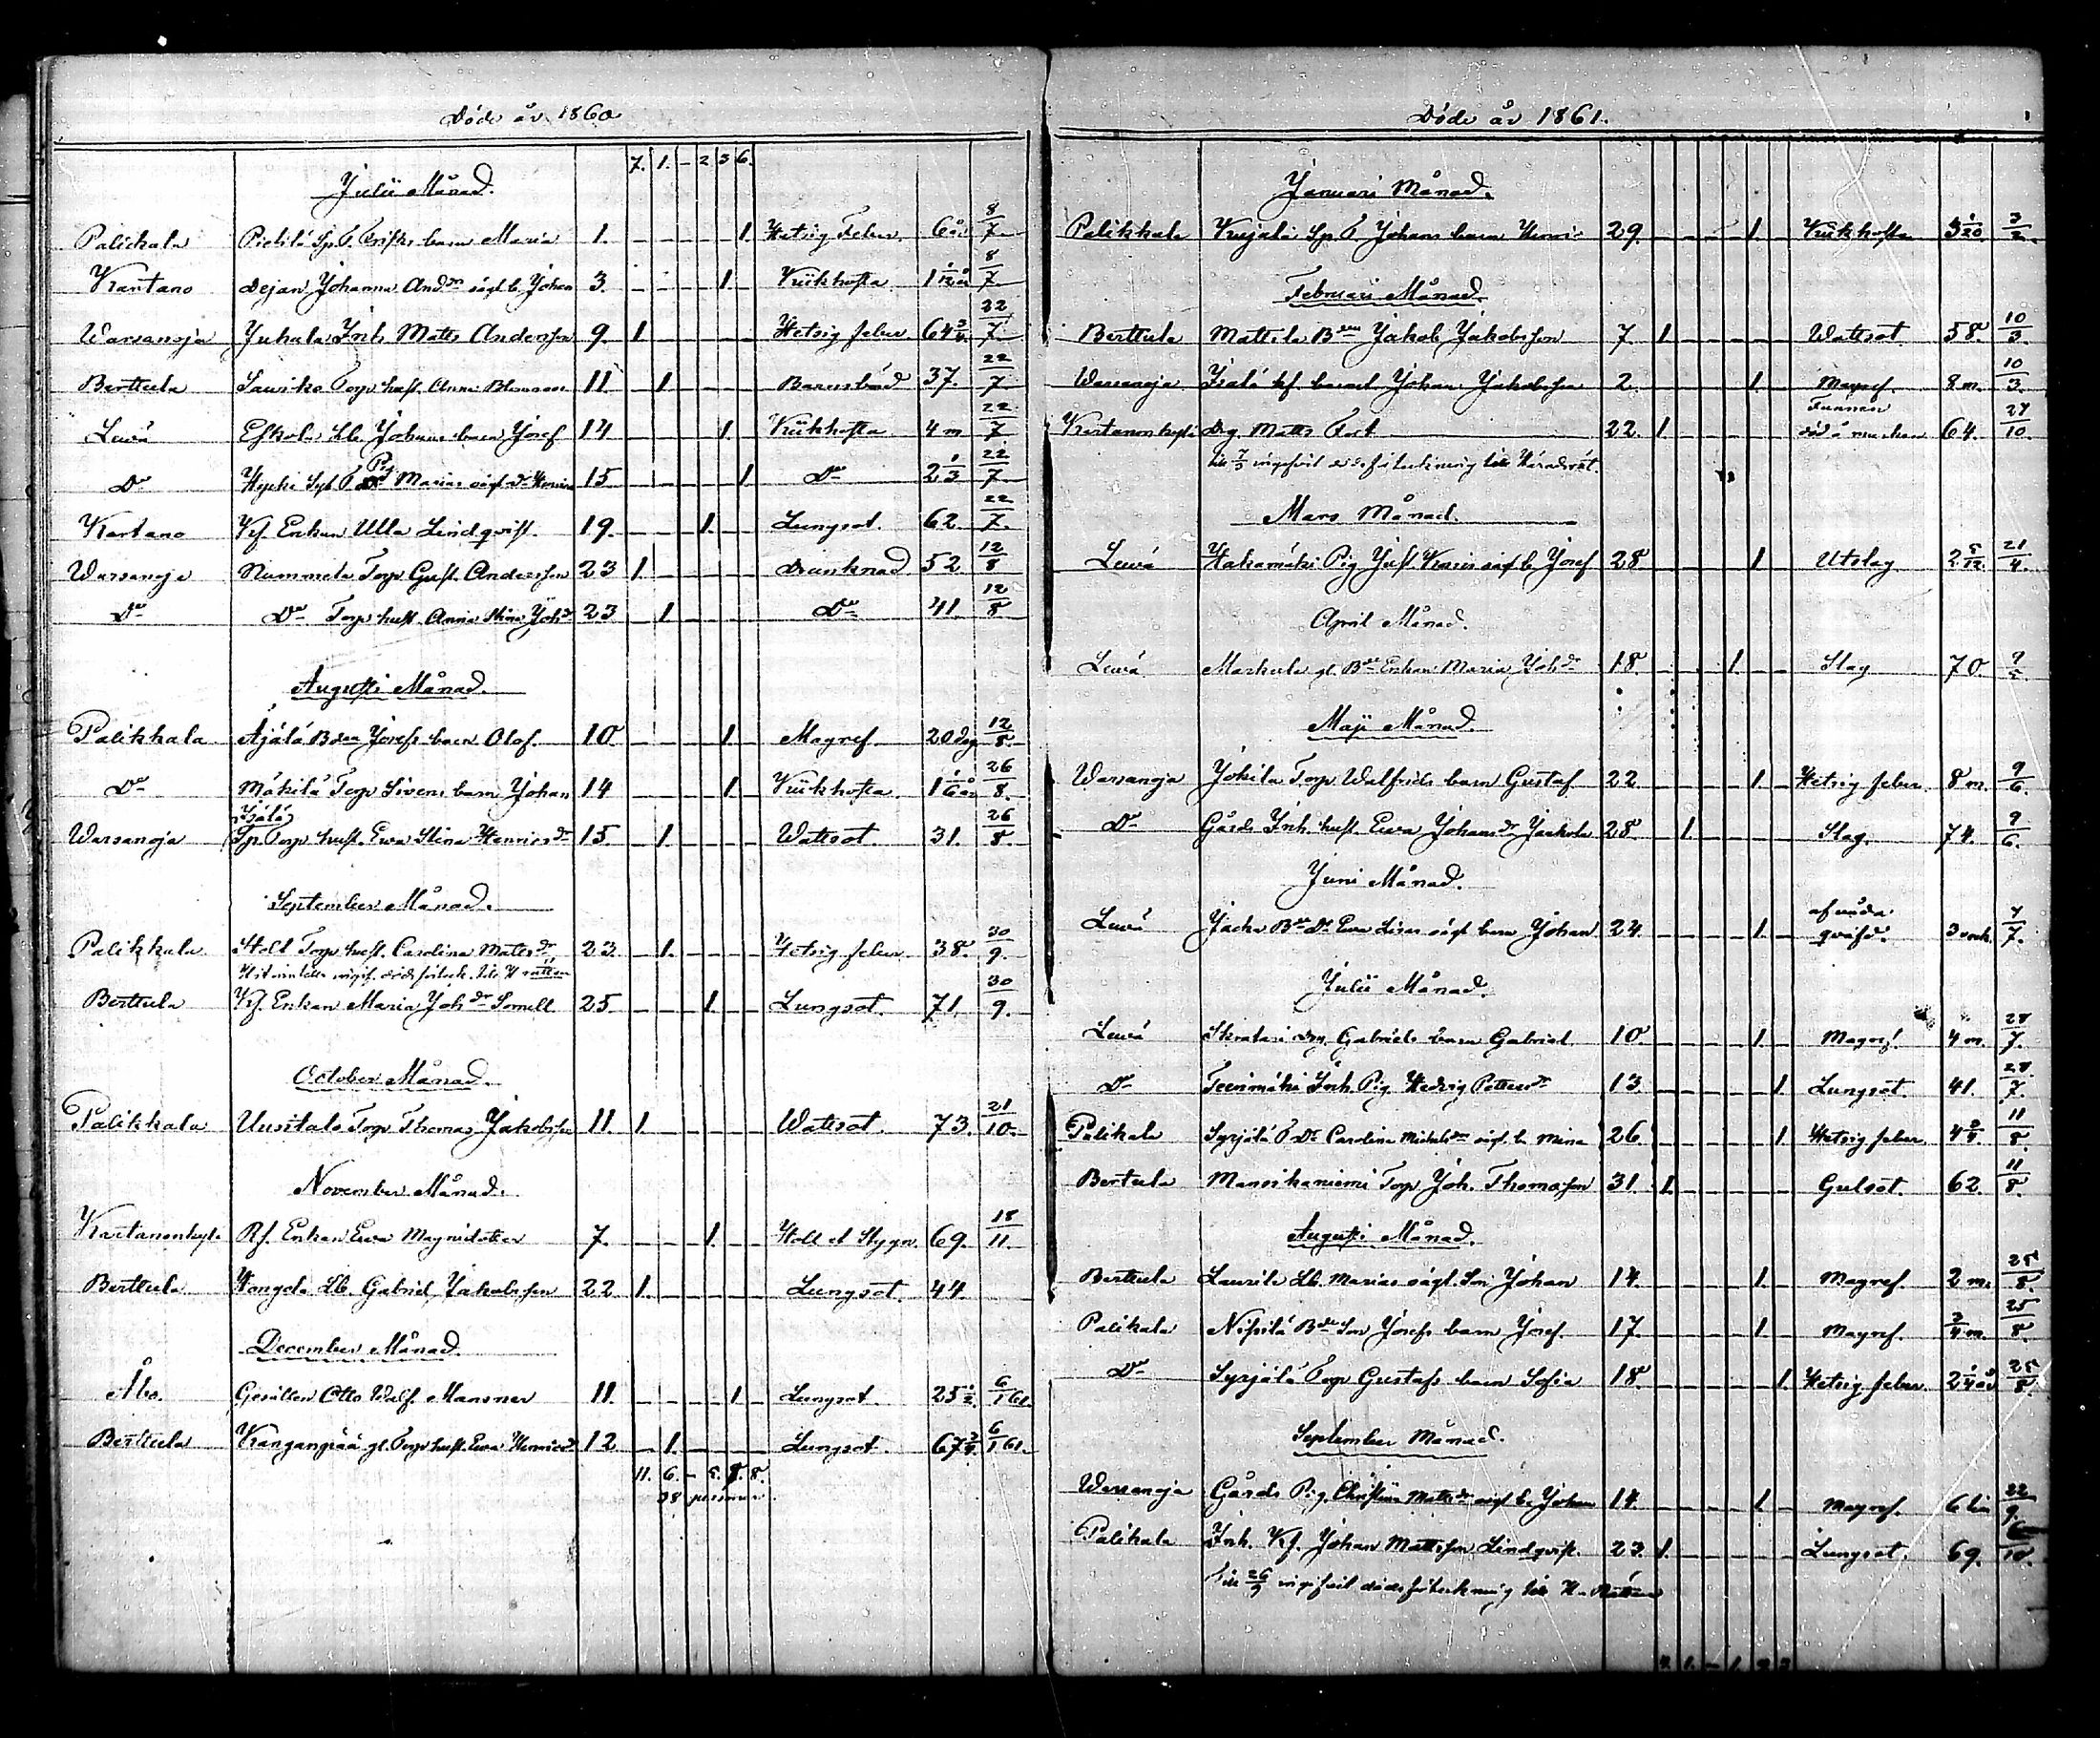 Döde år 1860
7. 1. - 2 3 6.
Julii Månad.
Palickala Pietilä Sp. T. barn Maria 1. 1. Hetsig Feber. 6 år 8/7
Kartano Dejan Johanna And.dr oägt b. Johan 3. 1. Kikhosta 1 1/12 år 8/7
Warsanoja Juhala Inh. Matts Andersson 9. 1. Hetsig feber. 64 3/4 22/7
Berttula Sauriko Torp. hust. Anna 11. 1. Barnsbörd 37. 22/7
Lewä Eskola Johans barn Josef 14 1. Kikhosta 4 m 22/7
Do Hyrki T. Pig. Marias oägt Dr 15 1. Do 2 1/3 22/7
Kartano Kf. Enkan Ulla Lindqvist. 19. 1. Lungsot. 62. 22/7
Warsanoja Nummela Torp. Gust. Andersson 23 1. Drunknad 52 12/8
Do Do Torp. hust. Anna Stina Joh.dr 23 1. Do 41. 12/8
Augusti Månad.
Palikkala Äjälä Bdn Josefs barn Olof. 10 1. Magref. 20 dag 12/8
Do Mäkilä Torp. Sivens barn Johan 14 1. Kikhosta. 1 1/6 år 26/8
Isätä
Warsanoja Sp. Torp. hust. Ewa Stina Henricsdr 15. 1. Wattsot. 31. 26/8
September Månad.
Palikkala Torp. hust. Carolina Mattsdr 23. 1. Hetsig feber 38. 30/9
Berttula Kf. Enkan Maria Joh.dr Sornell 25. 1. Lungsot. 71. 30/9
October Månad.
Palikkala Uusitalo Torp. Thomas Jakobsson 11. 1. Wattsot. 73. 21/10
November Månad.
Kartanonkylä Rf. Enkan Ewa Magnidotter 7. 1. Håll et Stygn. 69. 18/11
Berttula Hongela Gabriel Jakobsson 22. 1. Lungsot. 44.
December Månad.
Åbo. Gesällen Otto Walf. Mansner 11. 1. Lungsot. 25 1/2 6/1 61.
Berttula Kanganpää gl. Torp. hust. Ewa Henricsdr 12 1. Lungsot. 67 3/4 6/1 61.
11. 6. - 5. 8. 8.
38 personer.
Döde år 1861.
Januari Månad.
Palikkala Sp. T. Johans barn Henric 29. 1. Kikhosta 3 1/20 3/2
Februari Månad.
Berttula Mattila Bden Jakob Jakobsson 7 1. Wattsot 58. 10/3
Warsanoja Isätä barnet Johan Jakobsson 2. 1. Magref. 8 m. 10/3
Funnen
Kartanonkylä Drg. Matts Fort 22. 1. död å marken 64. 24/10
Mars Månad.
Lewä Hakamäki Pig. Just. Karis oägt b. Josef 28 1. Utslag 2 5/12 21/4
April Månad.
Lewä Markula gl. Bde Enkan Maria Joh.dr 18. 1. Slag 70.
Maji Månad.
Warsanoja Jokila Torp. Walfrids barn Gustaf 22 1. Hetsig feber. 8 m. 9/6
Do Gårds Inh. hust. Ewa Johansdr Jaakola 28. 1. Slag. 74. 9/6
Juni Månad.
af våda
Lewä Jacka Bde Dr Ewa Lisas oägt barn Johan 24. 1. qväfd. 3 vek. 7/7
Julii Månad.
Lewä Skratari Drg. Gabriels barn Gabriel 10. 1. Magref. 4 m. 28/7
Do Teenimäki Inh. Pig. Hedvig Pettersdr 13. 1. Lungsot. 41. 28/7
Palikala Syrjälä T. Dr Carolina Michelsdr oägt b. Mina 26. 1. Hetsig feber 4 3/4 11/8
Bertula Mansikaniemi Torp. Joh. Thomasson 31. 1. Gulsot. 62. 11/8
Augusti Månad.
Berttula Laurila Marias oägt. Son Johan 14. 1. Magref. 2 m. 25/8
Palikala Nissilä Bde Son Josefs barn Josef. 17. 1. Magref. 3/4 m. 25/8
Do Syrjälä Torp. Gustafs barn Sofia 18. 1. Hetsig feber. 2 1/4 år 25/8
September Månad.
Warsanoja Gårds Pig. Christina Mattsdr oägt b. Johan 14. 1. Magref. 6 22/9
Palikala Inh. Kf. Johan Mattsson Lindqvist. 23. 1. Lungsot. 69. 6/10
26/9 ingifvit dödsförteckning till H. Rätten